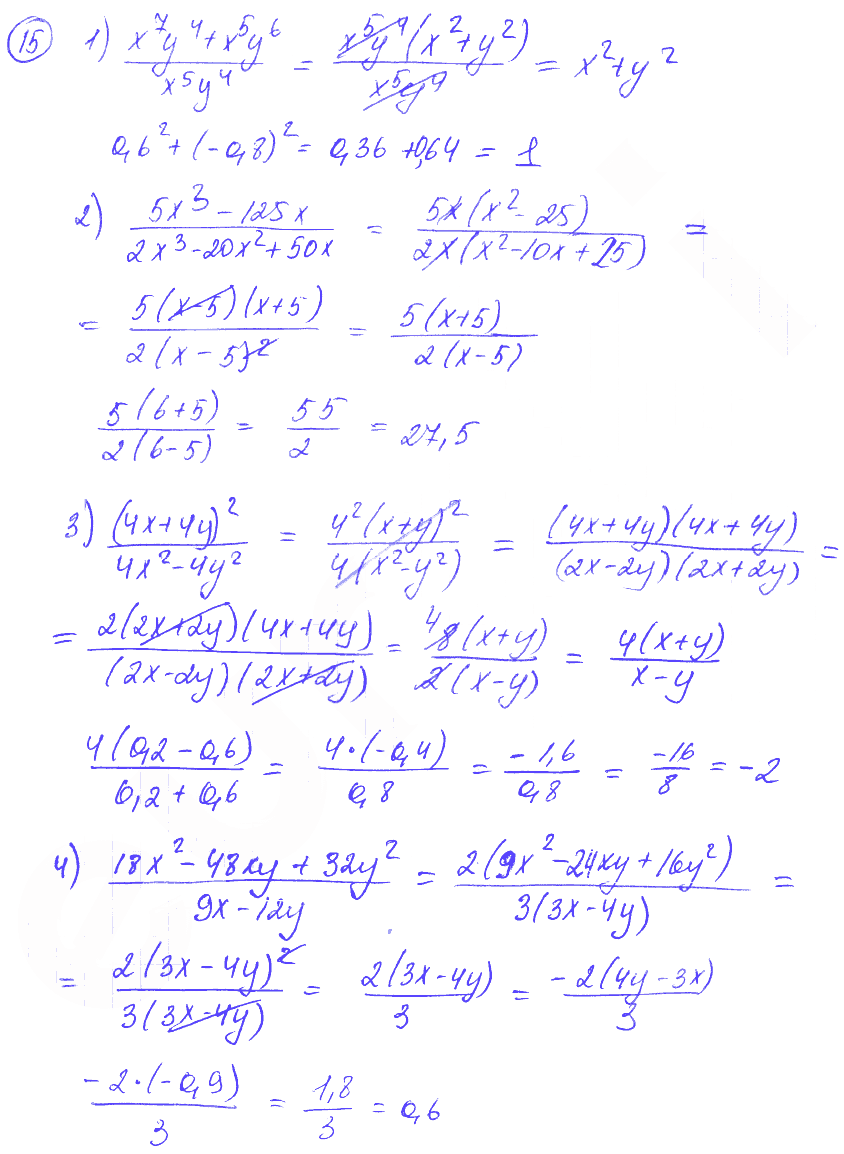 15 1) (x⁷y⁴+x⁵y⁶)/(x⁵y⁴) = (x⁵y⁴(x²+y²))/(x⁵y⁴) = x²+y²
0,6²+(-0,8)² = 0,36+0,64 = 1
2) (5x³-125x)/(2x³-20x²+50x) = (5x(x²-25))/(2x(x²-10x+25)) =
= (5(x-5)(x+5))/(2(x-5)²) = (5(x+5))/(2(x-5))
(5(6+5))/(2(6-5)) = 55/2 = 27,5
3) (4x+4y)²/(4x²-4y²) = (4²(x+y)²)/(4(x²-y²)) = ((4x+4y)(4x+4y))/((2x-2y)(2x+2y)) =
= (2(2x+2y)(4x+4y))/((2x-2y)(2x+2y)) = ⁴8(x+y)/(2(x-y)) = (4(x+y))/(x-y)
(4(0,2-0,6))/(0,2+0,6) = (4•(-0,4))/(0,8) = (-1,6)/(0,8) = -16/8 = -2
4) (18x²-48xy+32y²)/(9x-12y) = (2(9x²-24xy+16y²))/(3(3x-4y)) =
= (2(3x-4y)²)/(3(3x-4y)) = (2(3x-4y))/3 = (-2(4y-3x))/3
(-2•(-0,9))/3 = 1,8/3 = 0,6